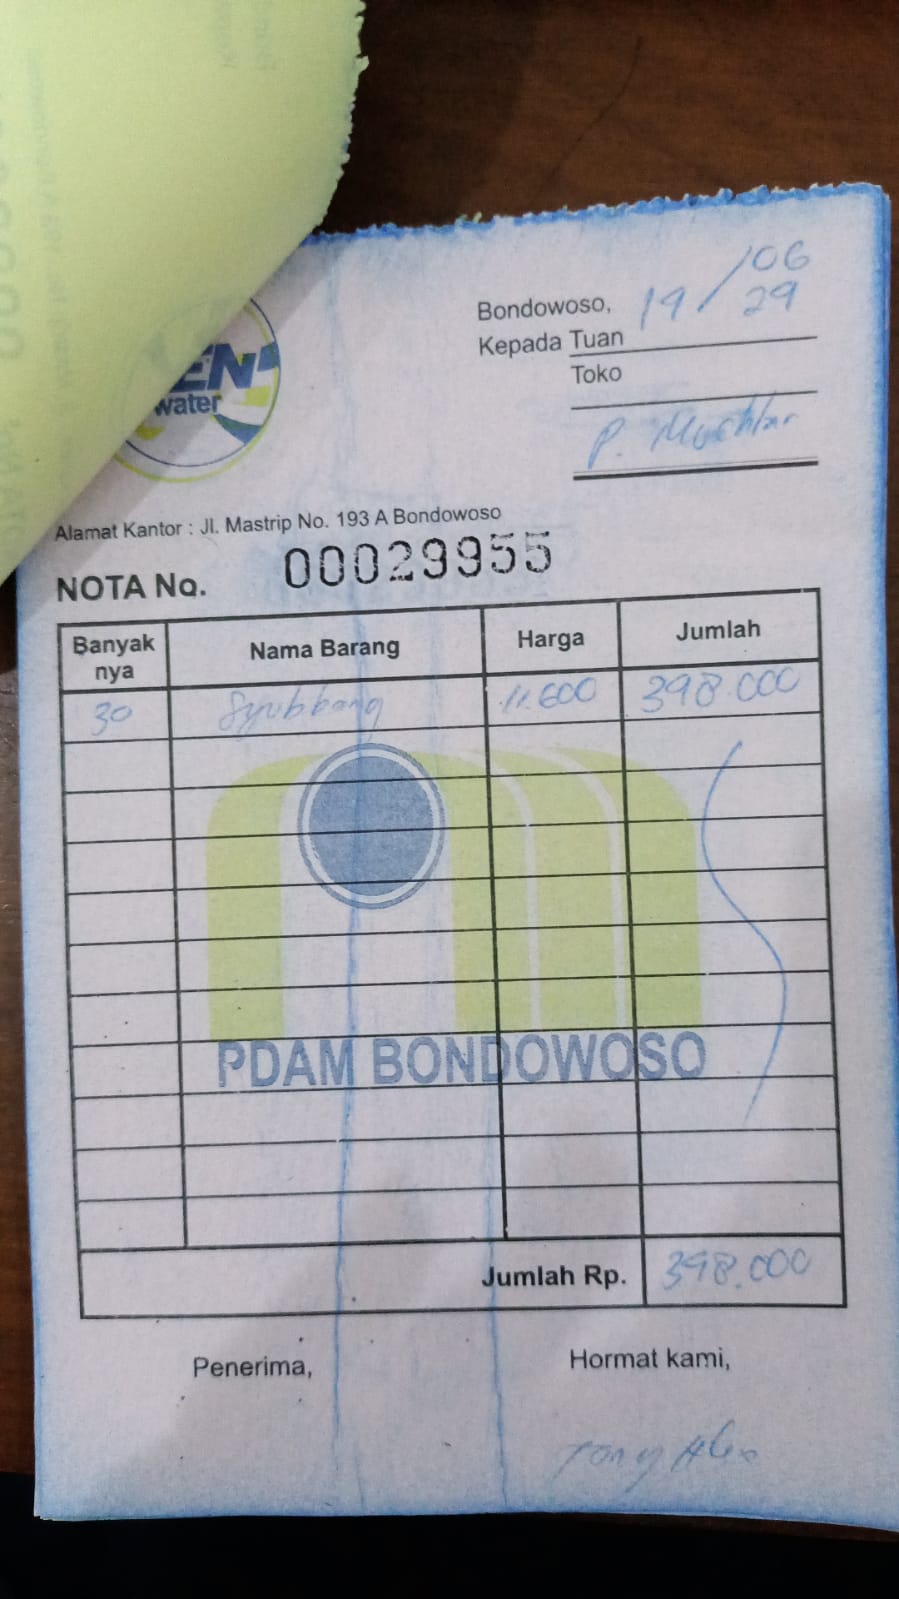 EN
water
Bondowoso, 19/06
29
Kepada Tuan
Toko
P. Muchtar
Alamat Kantor : Jl. Mastrip No. 193 A Bondowoso
NOTA No. 00029955
Banyak nya Nama Barang Harga Jumlah
30 11.600 398.000
PDAM BONDOWOSO
Jumlah Rp. 398.000
Penerima, Hormat kami,
Tony